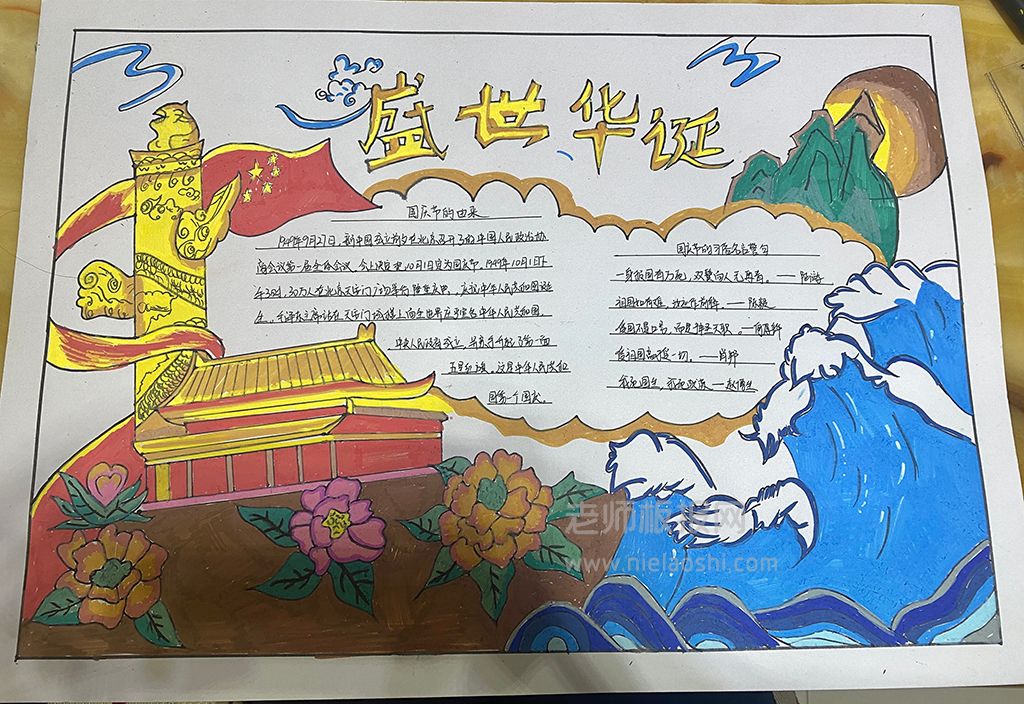 盛世华诞
国庆节的由来
1949年9月27日,新中国成立前夕在北京召开了的中国人民政治协
商会议第一届全体会议,会上决定把10月1日定为国庆节,1949年10月1日下
午3时,30万人在北京天安门广场举行隆重庆典,庆祝中华人民共和国诞
生。毛泽东主席站在天安门城楼上向全世界庄严宣告中华人民共和国,
中央人民政府成立,并亲手升起了第一面
五星红旗。这是中华人民共和
国第一个国庆。
国庆节的习俗名言警句
一身报国有万死,双鬓向人无再青。——陆游
祖国如有难,汝应作前锋。——陈毅
爱国不是口号,而是
为祖国高于一切。——肖邦
我死国生,我死犹荣——赵博生
老师板报网
www.nielaoshi.com